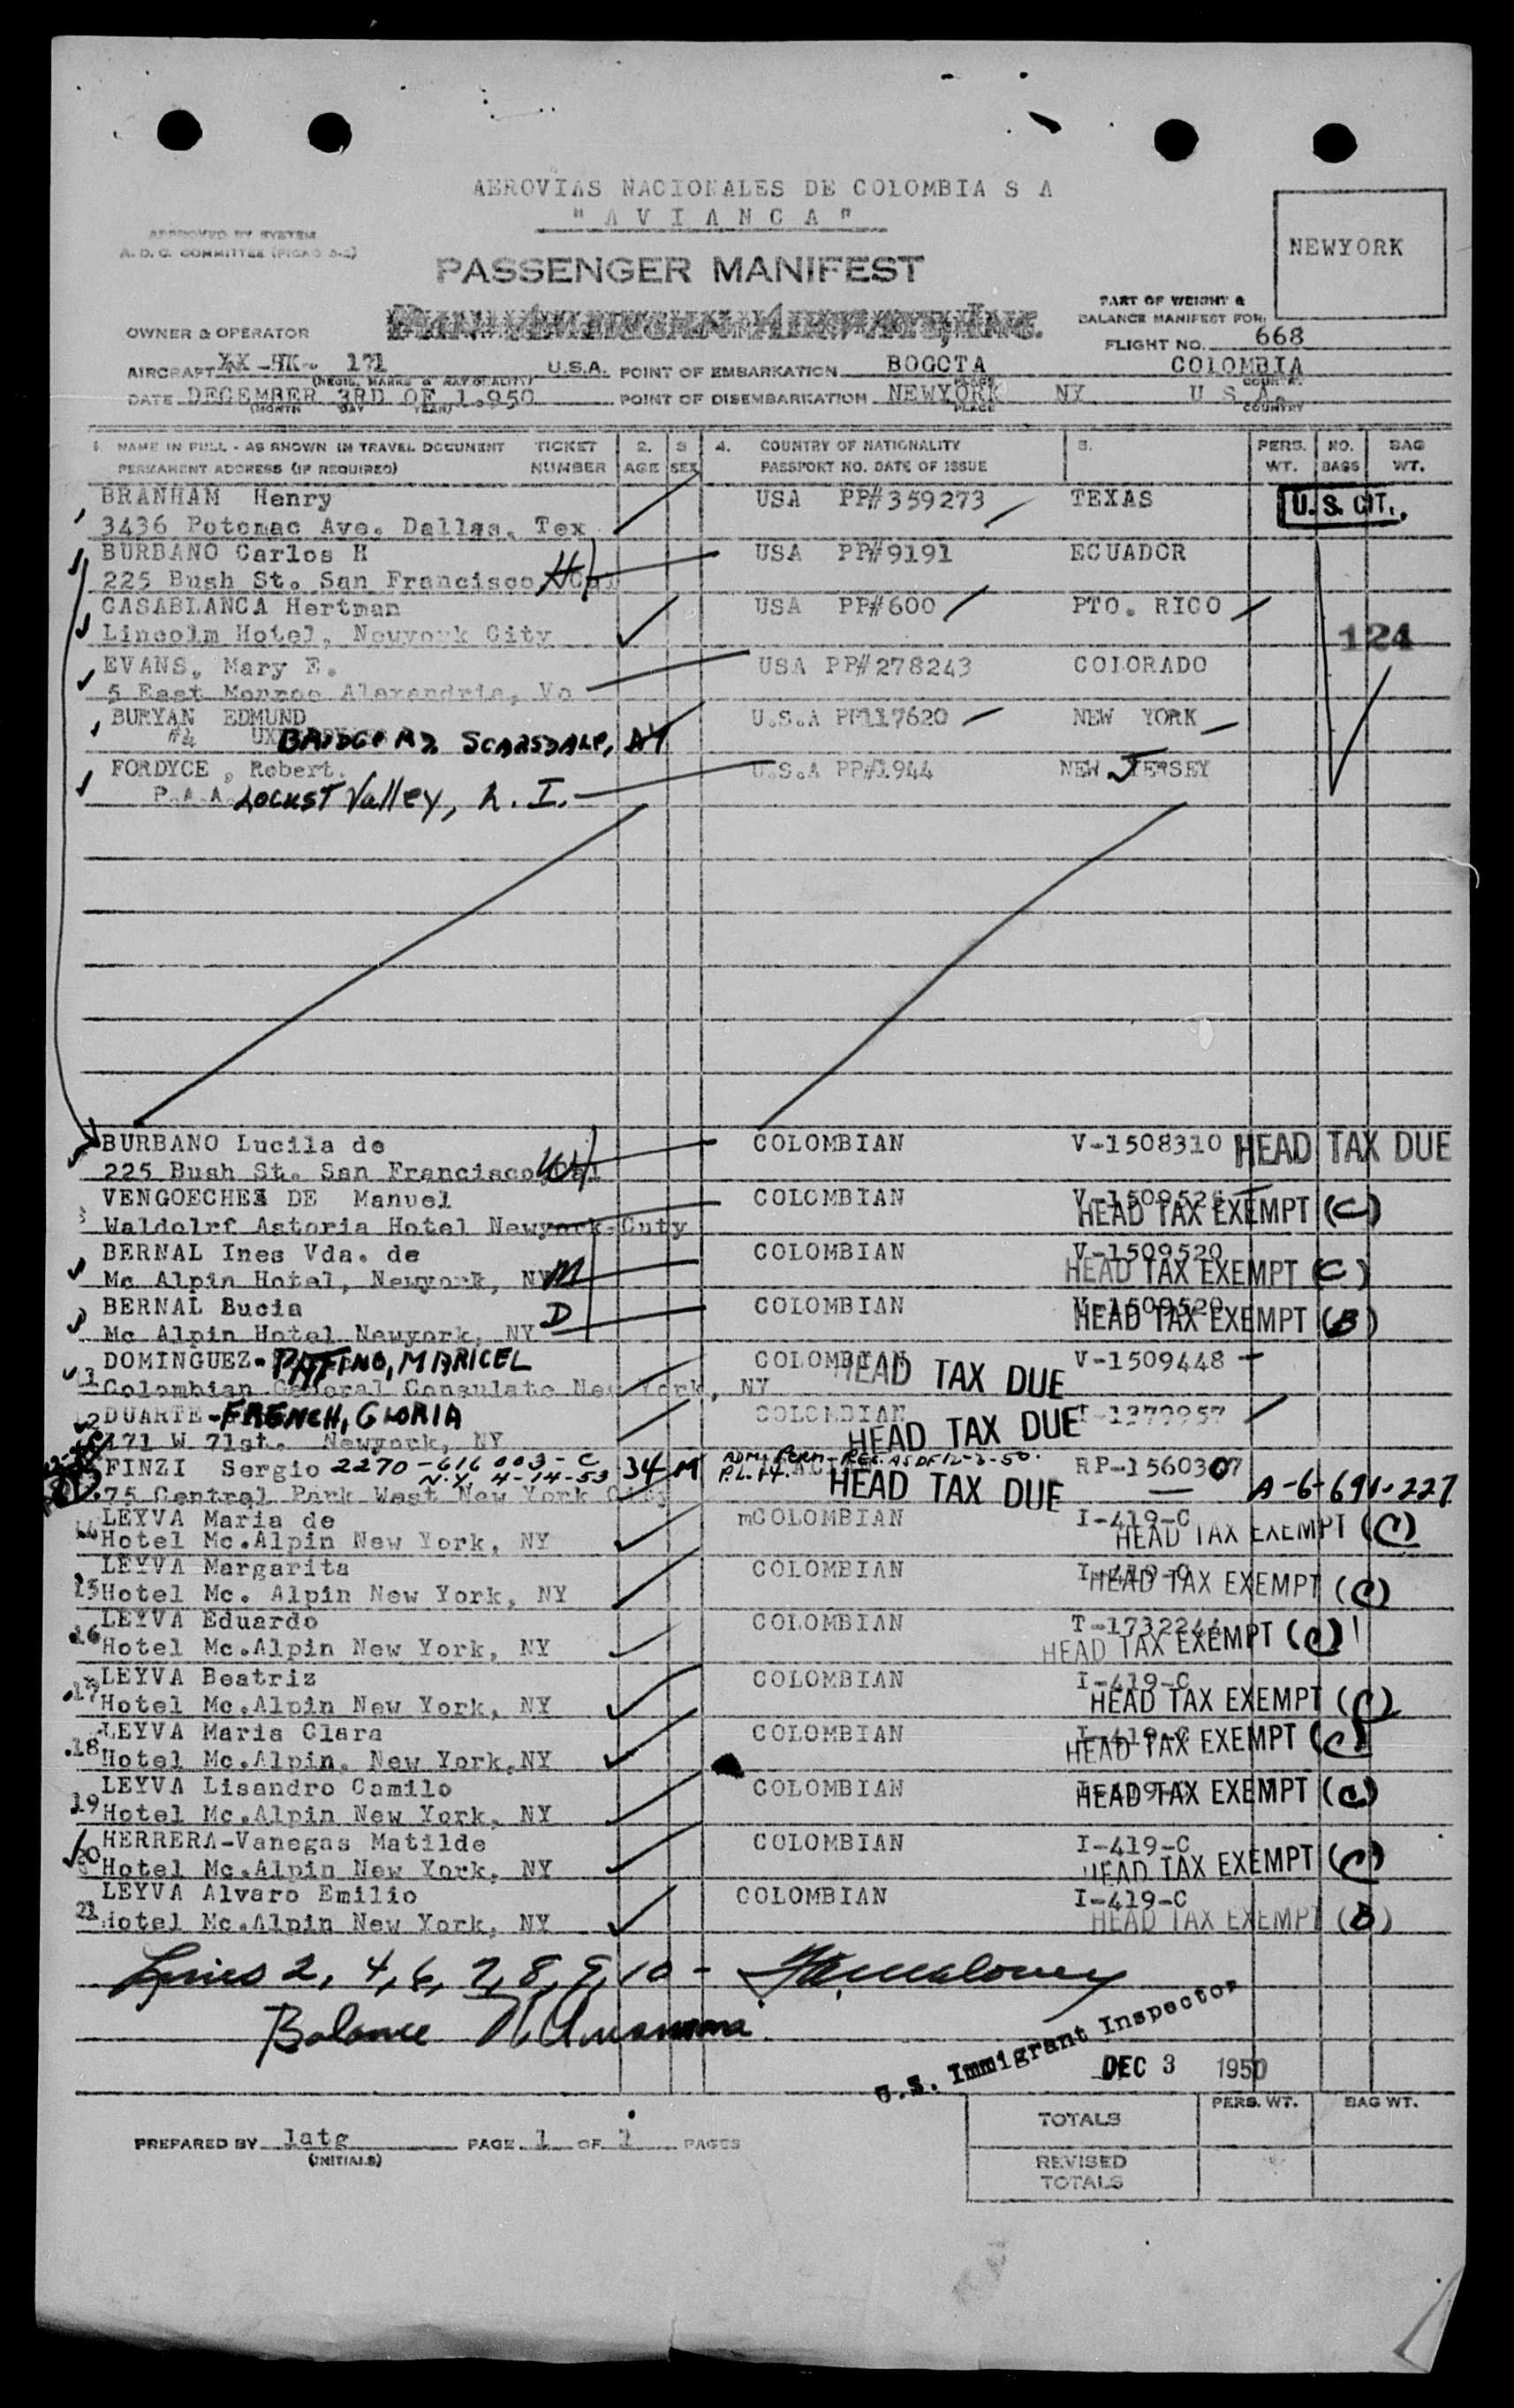 AEROVIAS NACIONALES DE COLOMBIA S A
" A V I A N C A "
APPROVED BY SYSTEM
A. D. C. COMMITTEE (PICAO 5-2)
NEWYORK
PASSENGER MANIFEST
PART OF WEIGHT &
BALANCE MANIFEST FOR:
OWNER & OPERATOR
FLIGHT NO. 668
AIRCRAFT XX-HK- 171 U.S.A. POINT OF EMBARKATION BOGOTA COLOMBIA
DATE DECEMBER 3RD OF 1.950 POINT OF DISEMBARKATION NEWYORK NY U S A.
(MONTH DAY YEAR) PLACE COUNTRY
1. NAME IN FULL - AS SHOWN IN TRAVEL DOCUMENT TICKET 2. 3 4. COUNTRY OF NATIONALITY 5. PERS. NO. BAG
PERMANENT ADDRESS (IF REQUIRED) NUMBER AGE SEX PASSPORT NO. DATE OF ISSUE WT. BAGS WT.
BRANHAM Henry USA PP#359273 TEXAS U.S. CIT.
3436 Potomac Ave. Dallas, Tex
BURBANO Carlos H USA PP#9191 ECUADOR
225 Bush St. San Francisco, Cal H
CASABLANCA Hertman USA PP#600 PTO. RICO
Lincolm Hotel, Newyork City 124
EVANS, Mary E. USA PP#278243 COLORADO
5 East Monroe Alexandria, Vo
BURYAN EDMUND U.S.A PP117620 NEW YORK
#4 BRIDGE RD. SCARSDALE, NY
FORDYCE , Robert. U.S.A PP#1944 NEW JERSEY
P.A.A. LOCUST Valley, L. I.
BURBANO Lucila de COLOMBIAN V-1508310 HEAD TAX DUE
225 Bush St. San Francisco, Cal W
VENGOECHEA DE Manuel COLOMBIAN V-1509526
Waldolrf Astoria Hotel Newyork Cuty HEAD TAX EXEMPT (C)
BERNAL Ines Vda. de COLOMBIAN V-1509520
Mc Alpin Hotel, Newyork, NY M HEAD TAX EXEMPT (C)
BERNAL Bucia COLOMBIAN V-1509520
Mc Alpin Hotel Newyork, NY D HEAD TAX EXEMPT (B)
DOMINGUEZ-PATINO, MARICEL COLOMBIAN V-1509448
11 Colombian General Consulate New York, NY HEAD TAX DUE
DUARTE-FRENCH, GLORIA COLOMBIAN T-1370957
171 W 71st. Newyork, NY HEAD TAX DUE
FINZI Sergio 2270-616 003-C 34 M ADM. PERM-RES. AS OF 12-3-50. RP-1560307
N.Y. 4-14-53 P.L. 14.
75 Central Park West New York City HEAD TAX DUE A-6-691-227
LEYVA Maria de mCOLOMBIAN I-419-C
14 Hotel Mc.Alpin New York, NY HEAD TAX EXEMPT (C)
LEYVA Margarita COLOMBIAN I-419-C
15 Hotel Mc. Alpin New York, NY HEAD TAX EXEMPT (C)
LEYVA Eduardo COLOMBIAN T-1732244
16 Hotel Mc.Alpin New York, NY HEAD TAX EXEMPT (C)
LEYVA Beatriz COLOMBIAN I-419-C
17 Hotel Mc.Alpin New York, NY HEAD TAX EXEMPT (C)
LEYVA Maria Clara COLOMBIAN I-419-C
18 Hotel Mc.Alpin. New York,NY HEAD TAX EXEMPT (C)
LEYVA Lisandro Camilo COLOMBIAN
19 Hotel Mc.Alpin New York, NY HEAD TAX EXEMPT (C)
HERRERA-Vanegas Matilde COLOMBIAN I-419-C
20 Hotel Mc.Alpin New York, NY HEAD TAX EXEMPT (C)
LEYVA Alvaro Emilio COLOMBIAN I-419-C
21 Hotel Mc.Alpin New York, NY HEAD TAX EXEMPT (B)
Lines 2, 4, 6, 7, 8, 9, 10 -
Balance
U.S. Immigrant Inspector
DEC 3 1950
PERS. WT. BAG WT.
TOTALS
PREPARED BY latg PAGE 1 OF 1 PAGES
(INITIALS)
REVISED
TOTALS